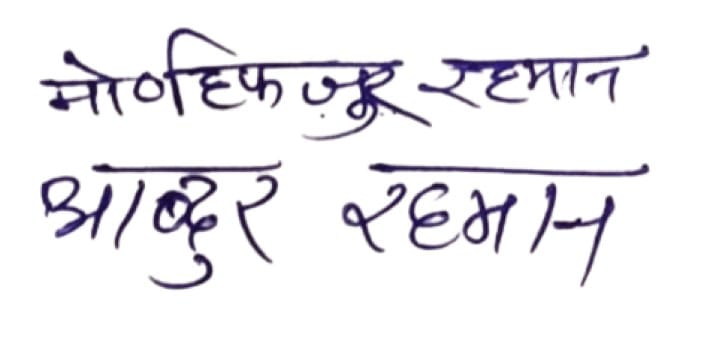 मो० हिफजुर रहमान
आब्दुर रहमान